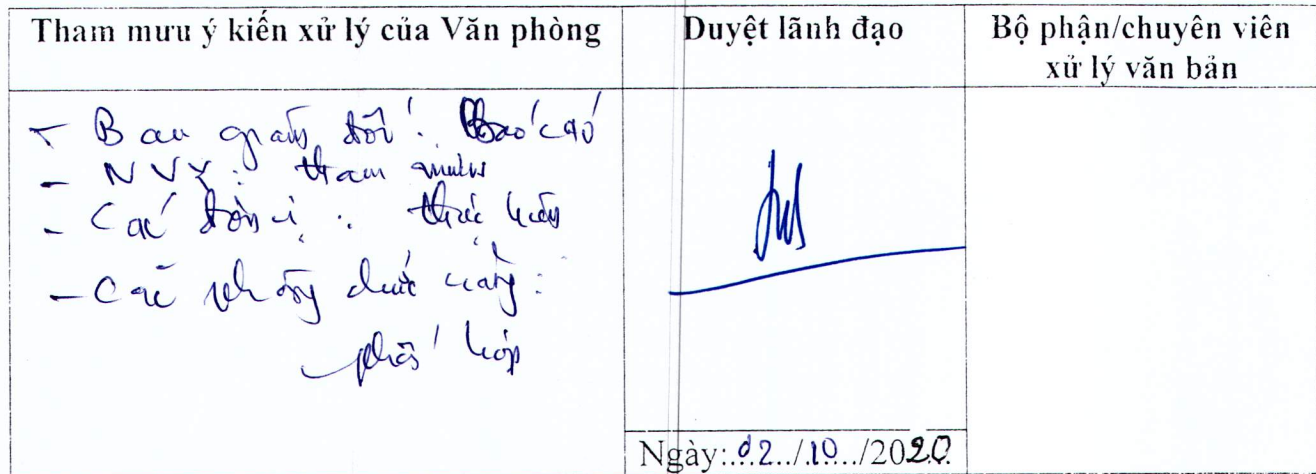 Tham mưu ý kiến xử lý của Văn phòng
Duyệt lãnh đạo
Bộ phận/chuyên viên
xử lý văn bản
- Ban giám đốc: Báo cáo
- NVY: tham mưu
- Các đơn vị: thực hiện
- Các phòng chức năng:
phối hợp
Ngày:.02../.10.../2020